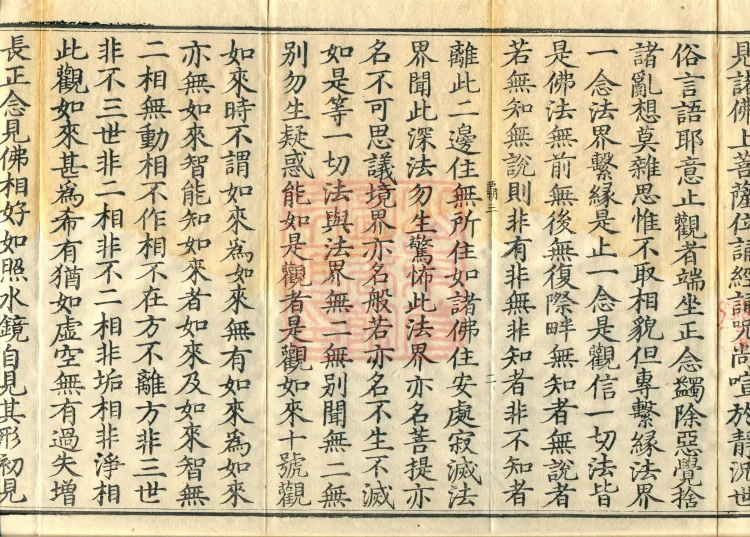 見諸佛上菩薩位誦經誦呪尚喧於靜況世
俗言語耶意止觀者端坐正念蠲除惡覺捨
諸亂想莫雜思惟不取相貌但專繫緣法界
一念法界繫緣是止一念是觀信一切法皆
是佛法無前無後無復際畔無知者無說者
若無知無說則非有非無非知者非不知者
離此二邊住無所住如諸佛住安處寂滅法
界聞此深法勿生驚怖此法界亦名菩提亦
名不可思議境界亦名般若亦名不生不滅
如是等一切法與法界無二無別聞無二無
別勿生疑惑能如是觀者是觀如來十號觀
如來時不謂如來為如來無有如來為如來
亦無如來智能知如來者如來及如來智無
二相無動相不作相不在方不離方非三世
非不三世非二相非不二相非垢相非淨相
此觀如來甚為希有猶如虛空無有過失增
長正念見佛相好如照水鏡自見其形初見